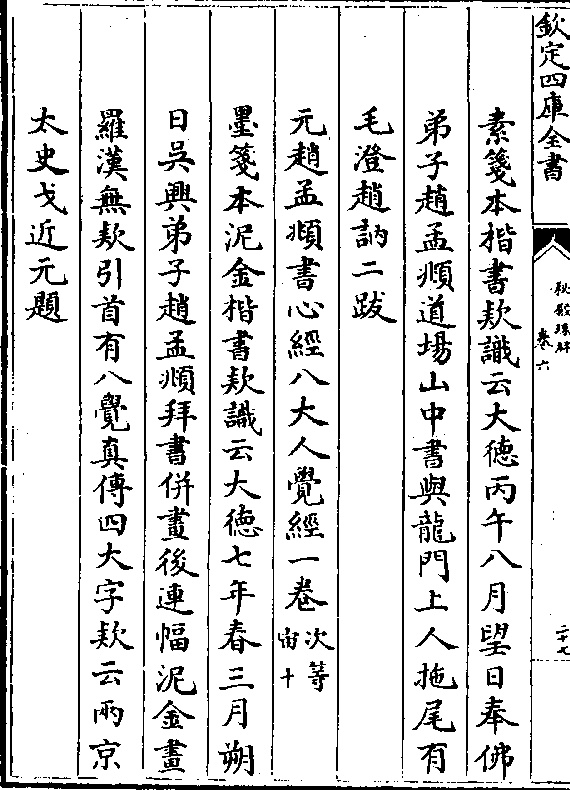 欽定四庫全書
秘殿珠林
卷六
二十七
素箋本楷書欵識云大徳丙午八月望日奉佛
弟子趙孟頫道場山中書與龍門上人拖尾有
毛澄趙訥二跋
元趙孟頫書心經八大人覺經一卷 次等宙十
墨箋本泥金楷書欵識云大徳七年春三月朔
日吳興弟子趙孟頫拜書併畫後連幅泥金畫
羅漢無欵引首有八覺真傳四大字欵云兩京
太史戈近元題